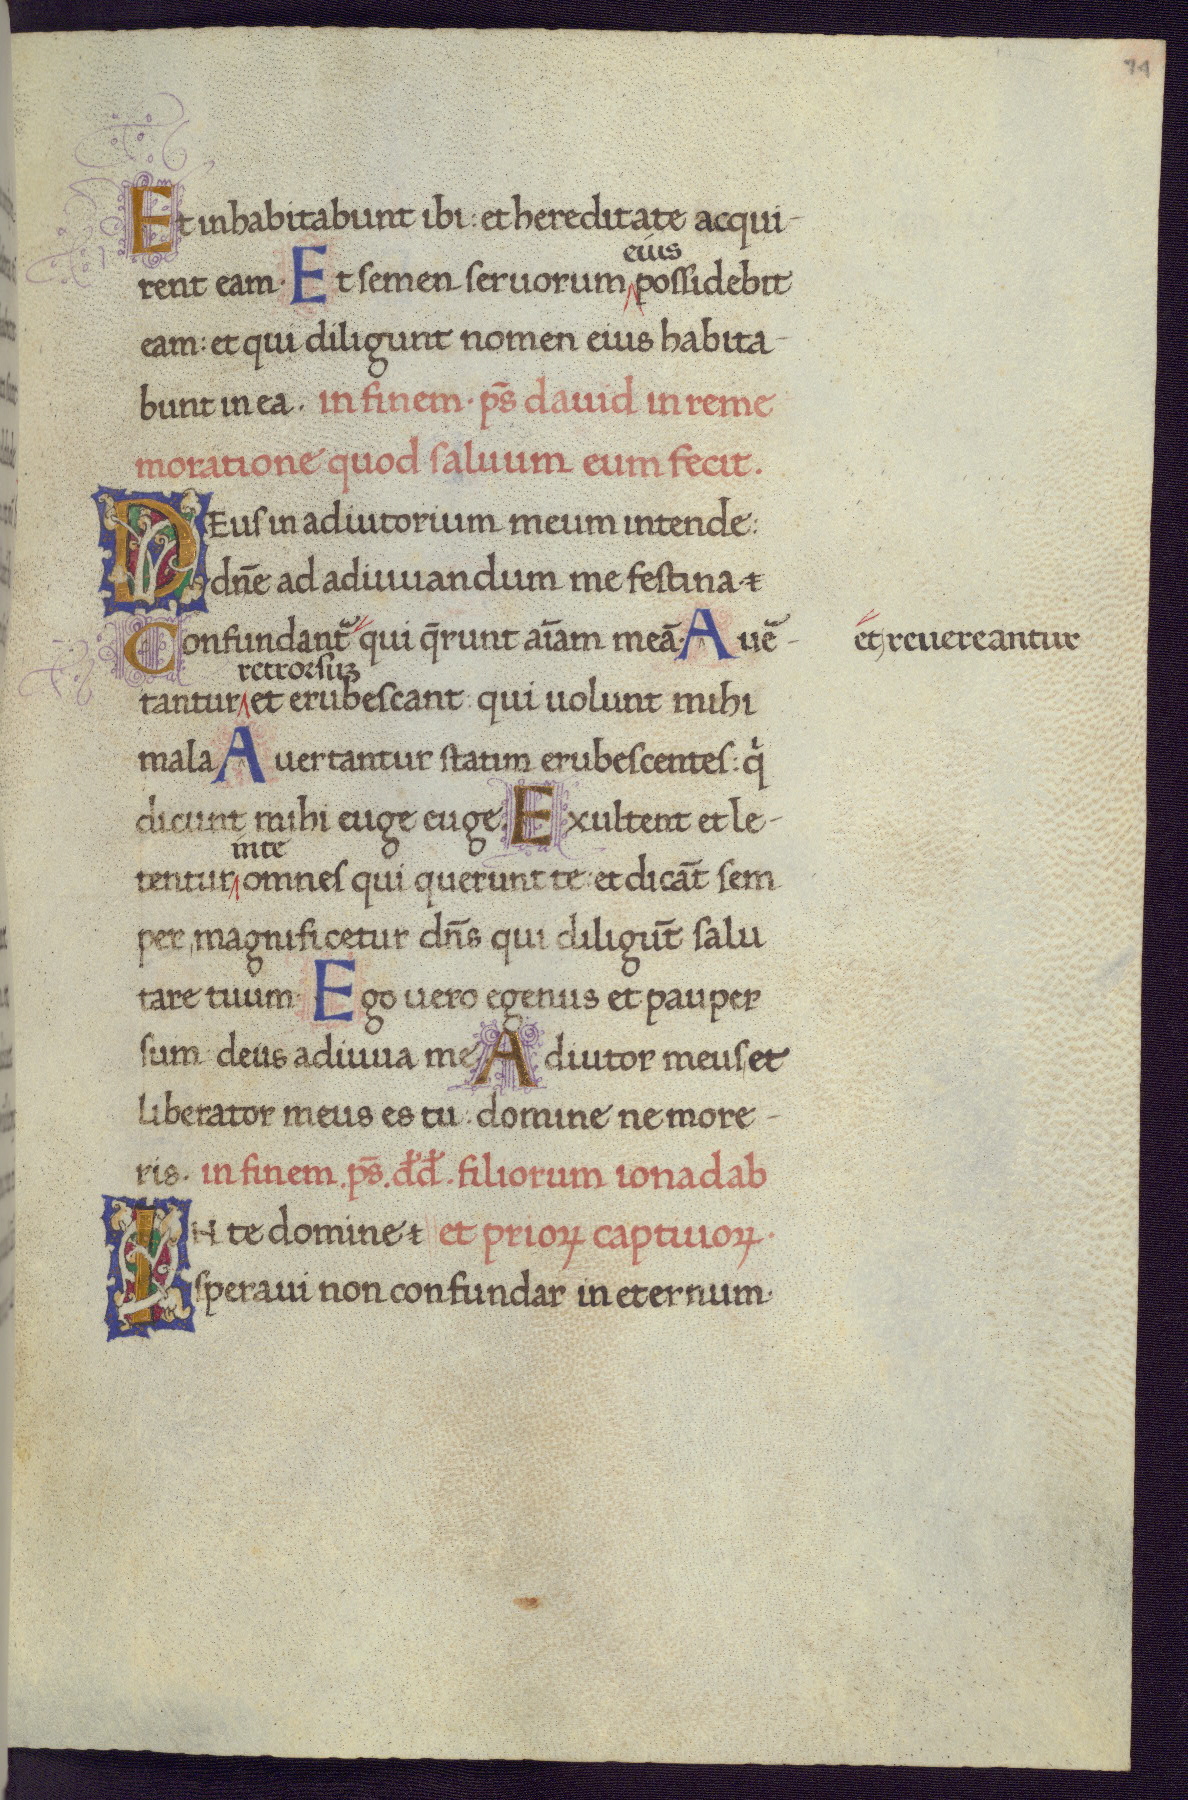 74
Et inhabitabunt ibi: et hereditate acqui-
eius
rent eam. Et semen seruorum possidebit
eam: et qui diligunt nomen eius habita-
bunt in ea. in finem. ps̄ dauid in reme
moratione quod saluum eum fecit.
DEus in adiutorium meum intende:
dn̄e ad adiuuandum me festina.
Confundant᷑ qui q̄runt aīam meā. Auē-
et reuereantur
retrorsuꝫ
tantur et erubescant: qui uolunt mihi
mala Auertantur statim erubescentes: qͥ
dicunt mihi euge euge. Exultent et le-
in te
tentur omnes qui querunt te: et dicāt sem
per magnificetur dn̄s qui diligūt salu
tare tuum. Ego uero egenus et pauper
sum: deus adiuua me Adiutor meus et
liberator meus es tu: domine ne more-
ris. in finem. ps̄. dd̄. filiorum ionadab
IN te domine et prioꝝ captiuoꝝ.
speraui non confundar in eternum.